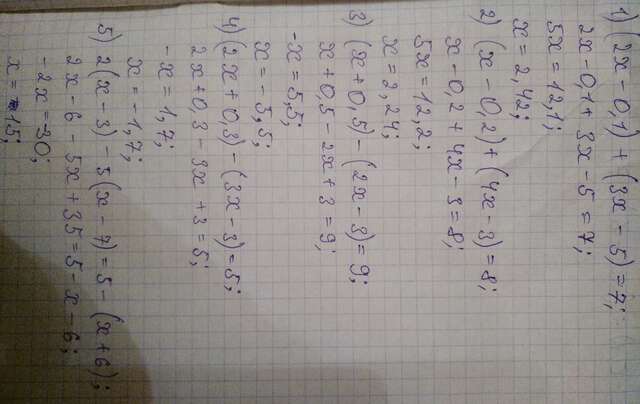 1) (2x - 0,1) + (3x - 5) = 7;
2x - 0,1 + 3x - 5 = 7;
5x = 12,1;
x = 2,42;
2) (x - 0,2) + (4x - 3) = 8;
x - 0,2 + 4x - 3 = 8;
5x = 12,2;
x = 2,24;
3) (x + 0,5) - (2x - 3) = 9;
x + 0,5 - 2x + 3 = 9;
-x = 5,5;
x = -5,5;
4) (2x + 0,3) - (3x - 3) = 5;
2x + 0,3 - 3x + 3 = 5;
-x = 1,7;
x = -1,7;
5) 2(x - 3) - 5(x - 7) = 5 - (x + 6);
2x - 6 - 5x + 35 = 5 - x - 6;
-2x = -30;
x = 15;